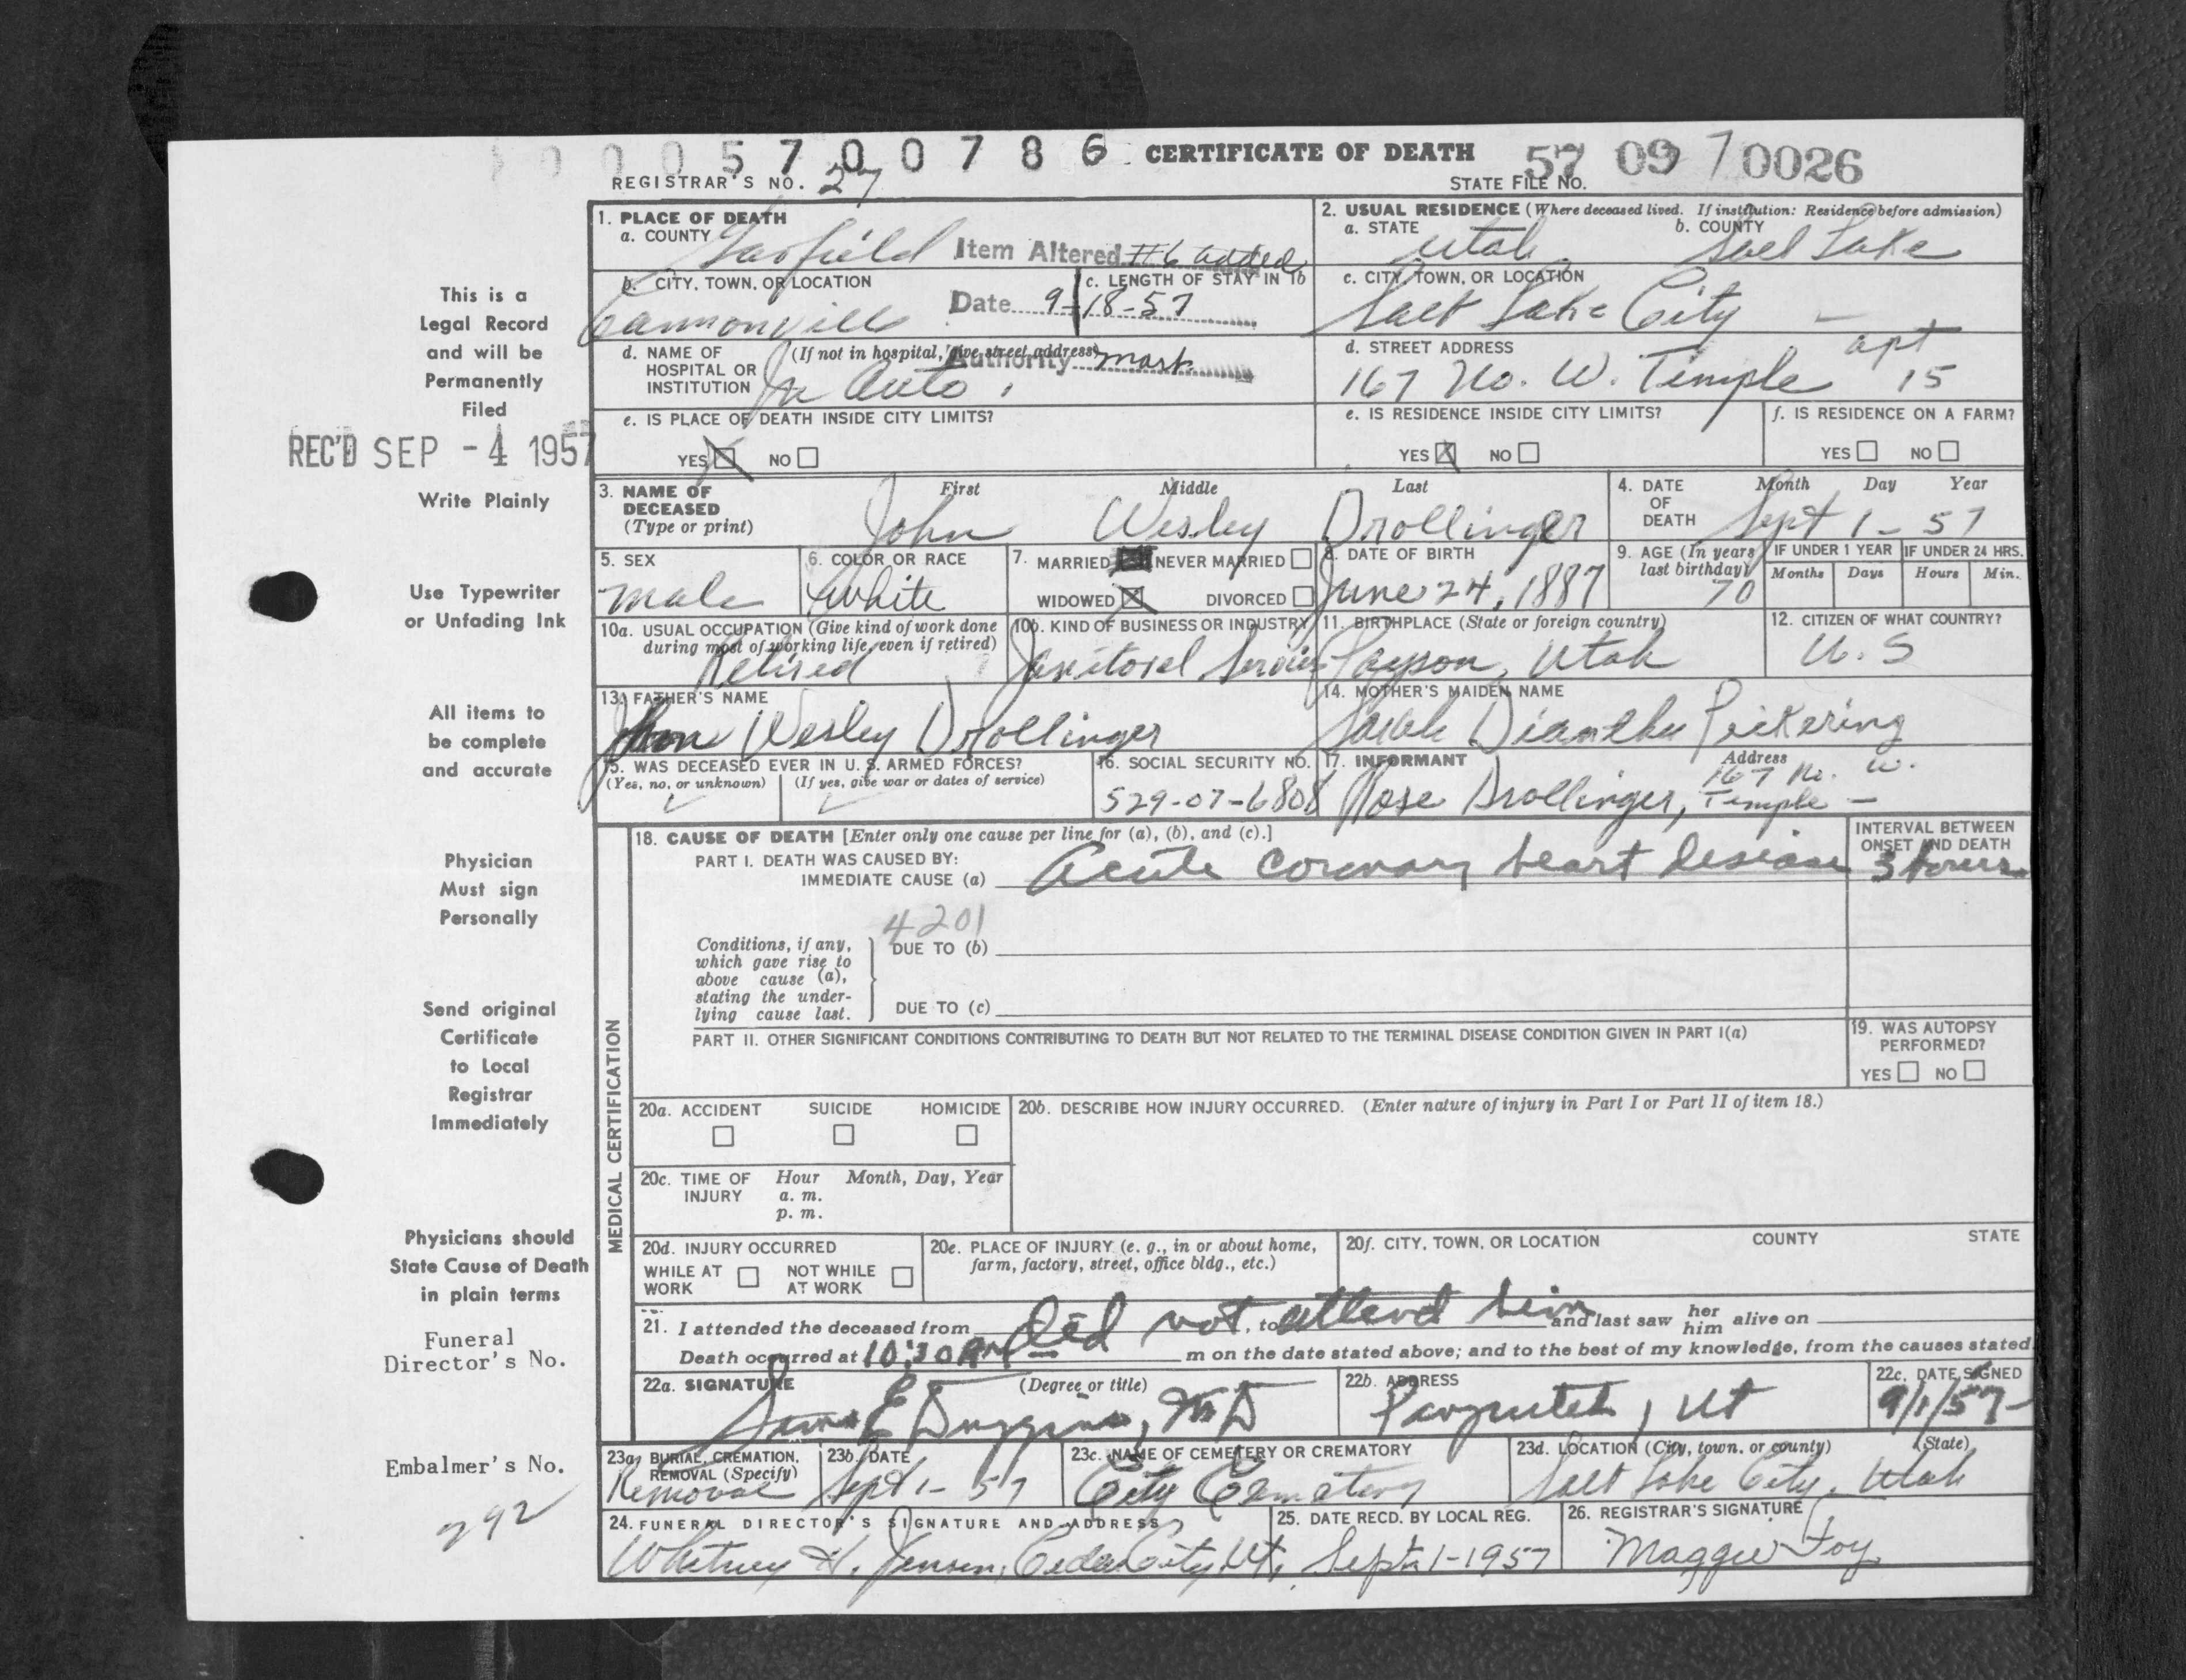 0005700786 CERTIFICATE OF DEATH 57 09 70026
REGISTRAR'S NO. 27 STATE FILE NO.
1. PLACE OF DEATH
a. COUNTY Garfield
Item Altered #6 added
2. USUAL RESIDENCE (Where deceased lived. If institution: Residence before admission)
a. STATE Utah b. COUNTY Salt Lake
b. CITY, TOWN, OR LOCATION Cannonville
c. LENGTH OF STAY IN 1b
Date 9-18-57
c. CITY, TOWN, OR LOCATION Salt Lake City
d. NAME OF HOSPITAL OR INSTITUTION (If not in hospital, give street address) In Auto
Authority mark
d. STREET ADDRESS 167 No. W. Temple apt 15
e. IS PLACE OF DEATH INSIDE CITY LIMITS?
YES NO
e. IS RESIDENCE INSIDE CITY LIMITS?
YES NO
f. IS RESIDENCE ON A FARM?
YES NO
3. NAME OF DECEASED (Type or print)
First Middle Last
John Wesley Drollinger
4. DATE OF DEATH Month Day Year
Sept 1 - 57
5. SEX male
6. COLOR OR RACE White
7. MARRIED NEVER MARRIED
WIDOWED DIVORCED
8. DATE OF BIRTH June 24, 1887
9. AGE (In years last birthday) 70
IF UNDER 1 YEAR Months Days
IF UNDER 24 HRS. Hours Min.
10a. USUAL OCCUPATION (Give kind of work done during most of working life, even if retired) Retired
10b. KIND OF BUSINESS OR INDUSTRY Janitorel Service
11. BIRTHPLACE (State or foreign country) Payson, Utah
12. CITIZEN OF WHAT COUNTRY? U.S
13. FATHER'S NAME John Wesley Drollinger
14. MOTHER'S MAIDEN NAME Sarah Diantha Pickering
15. WAS DECEASED EVER IN U. S. ARMED FORCES?
(Yes, no, or unknown) (If yes, give war or dates of service)
16. SOCIAL SECURITY NO. 529-07-6808
17. INFORMANT Address
Rose Drollinger, 167 No. W. Temple -
MEDICAL CERTIFICATION
18. CAUSE OF DEATH [Enter only one cause per line for (a), (b), and (c).]
PART I. DEATH WAS CAUSED BY:
IMMEDIATE CAUSE (a) Acute Coronary heart Desiase
INTERVAL BETWEEN ONSET AND DEATH
3 hours
4201
Conditions, if any, which gave rise to above cause (a), stating the underlying cause last.
DUE TO (b)
DUE TO (c)
PART II. OTHER SIGNIFICANT CONDITIONS CONTRIBUTING TO DEATH BUT NOT RELATED TO THE TERMINAL DISEASE CONDITION GIVEN IN PART I(a)
19. WAS AUTOPSY PERFORMED?
YES NO
20a. ACCIDENT SUICIDE HOMICIDE
20b. DESCRIBE HOW INJURY OCCURRED. (Enter nature of injury in Part I or Part II of item 18.)
20c. TIME OF INJURY Hour Month, Day, Year
a. m.
p. m.
20d. INJURY OCCURRED
WHILE AT WORK NOT WHILE AT WORK
20e. PLACE OF INJURY (e. g., in or about home, farm, factory, street, office bldg., etc.)
20f. CITY, TOWN, OR LOCATION COUNTY STATE
21. I attended the deceased from Did not, to attend him and last saw her him alive on
Death occurred at 10:30 AM m on the date stated above; and to the best of my knowledge, from the causes stated.
22a. SIGNATURE (Degree or title)
Duggins, MD
22b. ADDRESS Panguitch, Ut
22c. DATE SIGNED 9/1/57
23a. BURIAL, CREMATION, REMOVAL (Specify) Removal
23b. DATE Sept 1 - 57
23c. NAME OF CEMETERY OR CREMATORY City Cemetery
23d. LOCATION (City, town, or county) (State)
Salt Lake City, Utah
24. FUNERAL DIRECTOR'S SIGNATURE AND ADDRESS
Whitney H. Jensen, Cedar City, Ut,
25. DATE RECD. BY LOCAL REG. Sept. 1-1957
26. REGISTRAR'S SIGNATURE
Maggie Foy
This is a
Legal Record
and will be
Permanently
Filed
REC'D SEP - 4 1957
Write Plainly
Use Typewriter
or Unfading Ink
All items to
be complete
and accurate
Physician
Must sign
Personally
Send original
Certificate
to Local
Registrar
Immediately
Physicians should
State Cause of Death
in plain terms
Funeral
Director's No.
Embalmer's No.
292